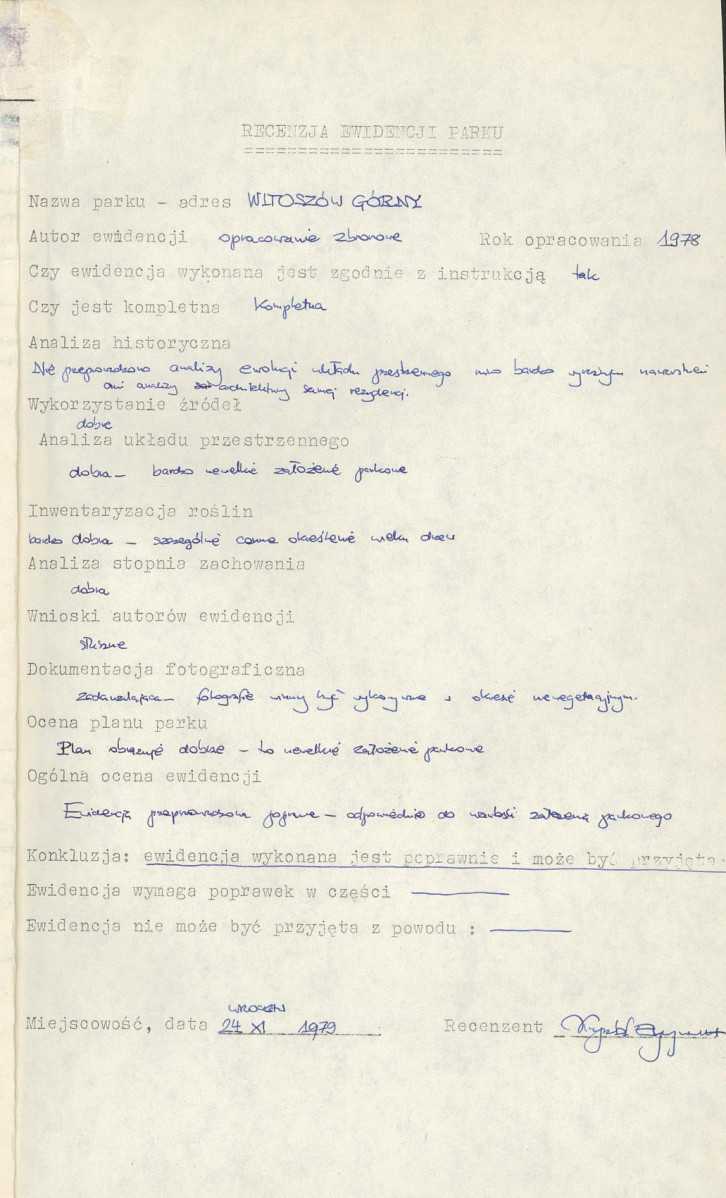 RECENZJA EWIDENCJI PARKU
Nazwa parku - adres WITOSZÓW GÓRNY
Autor ewidencji opracowanie zbiorowe Rok opracowania 1978
Czy ewidencja wykonana jest zgodnie z instrukcją tak
Czy jest kompletna kompletna
Analiza historyczna
Nie przeprowadzono analizy ewolucji układu przestrzennego bardzo
ani analizy architektury samej rezydencji.
Wykorzystanie źródeł
dobre
Analiza układu przestrzennego
dobra - bardzo niewielkie założenie parkowe
Inwentaryzacja roślin
bardzo dobra - szczególnie cenne określenie wieku drzew
Analiza stopnia zachowania
dobra
Wnioski autorów ewidencji
słuszne
Dokumentacja fotograficzna
zadawalająca - fotografie winny być wykonywane w okresie wegetacyjnym.
Ocena planu parku
Plan obrazuje dobrze - to niewielkie założenie parkowe
Ogólna ocena ewidencji
Ewidencja przeprowadzona poprawnie - odpowiednio do wartości założenia parkowego
Konkluzja: ewidencja wykonana jest poprawnie i może być przyjęta.
Ewidencja wymaga poprawek w części
Ewidencja nie może być przyjęta z powodu :
WROCŁAW
Miejscowość, data 24 XI 1979 Recenzent